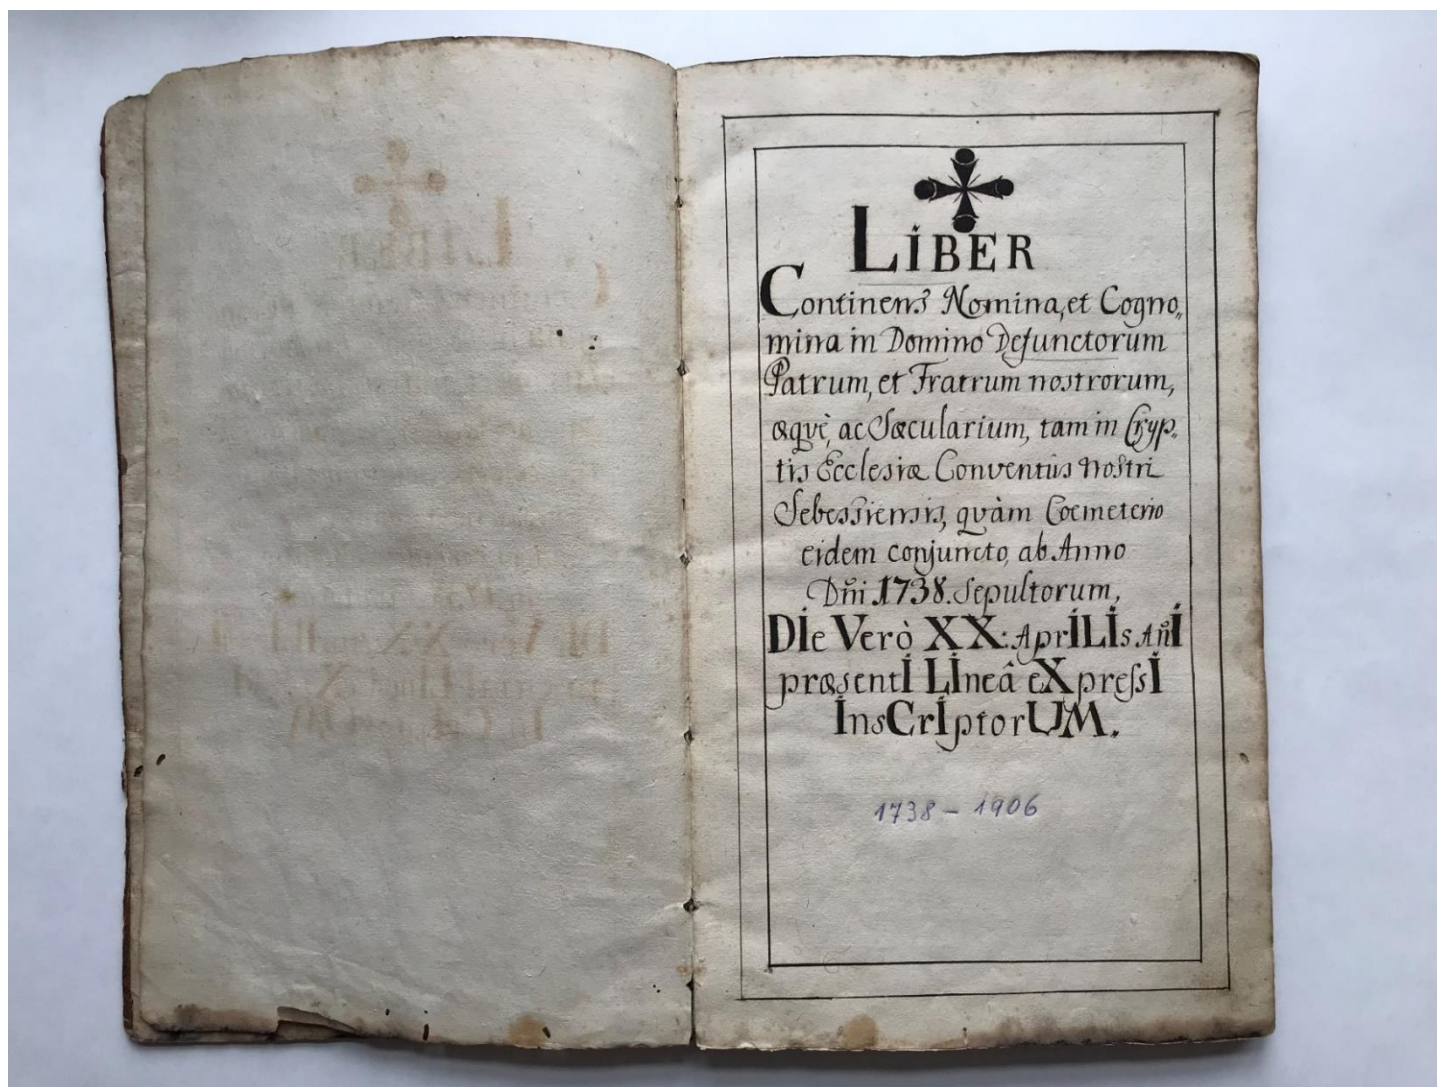 LIBER
Continens Nomina, et Cogno„
mina in Domino Defunctorum
Patrum, et Fratrum nostrorum,
æquè, ac Sæcularium, tam in Cryp„
tis Ecclesiæ Conventûs nostri
Sebessiensis, quàm Coemeterio
eidem conjuncto, ab Anno
Dñi 1738. Sepultorum,
DIe Verò XX: AprILIs Añi
præsentI LIneâ eXpressI
InsCrIptorUM.
1738 – 1906